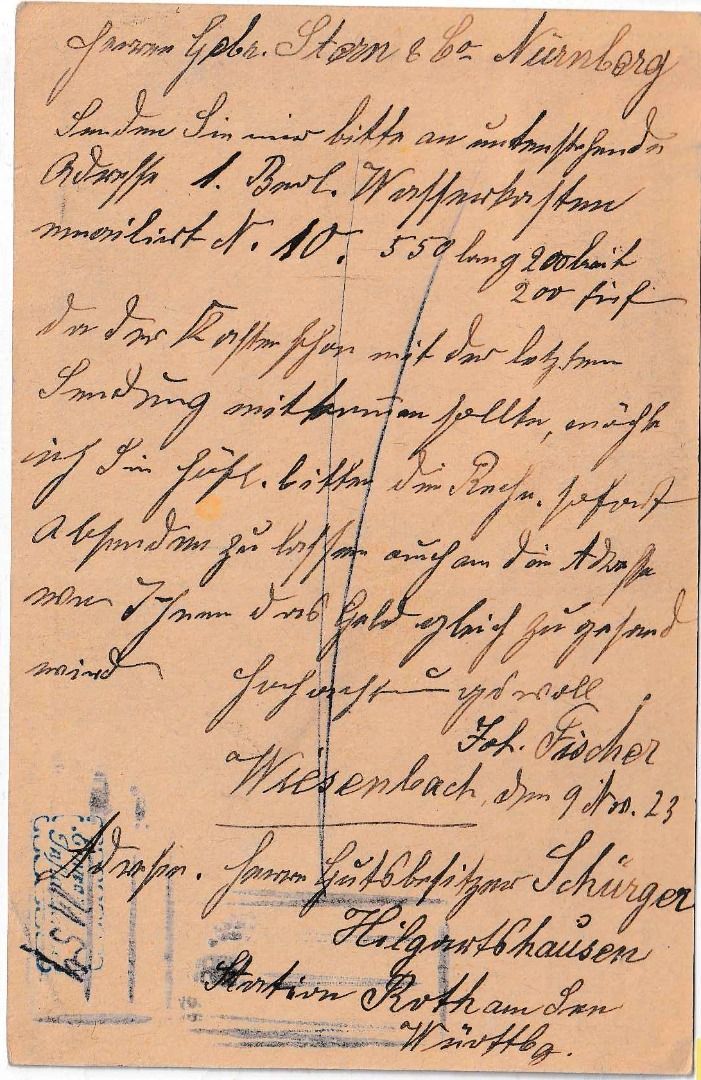 Herren Gebr. Stern & Co Nürnberg
Senden Sie mir bitte an untenstehende
Adresse 1. Berl. Wasserkasten
emailiert N. 10. 550 lang 200 breit
200 tief
da der Kasten schon mit der letzten
Sendung mitkommen sollte, möchte
ich Sie höfl. bitten die Rechn. sofort
Absenden zu lassen auch an die Adresse
wo Ihnen das Geld gleich zu gesand
wird Hochachtungsvoll
Joh. Fischer
Wiesenbach, den 9 Nov. 23
Adresse. Herrn Gutsbesitzer Schürger
Hilgartshausen
Station Roth am See
Württbg.